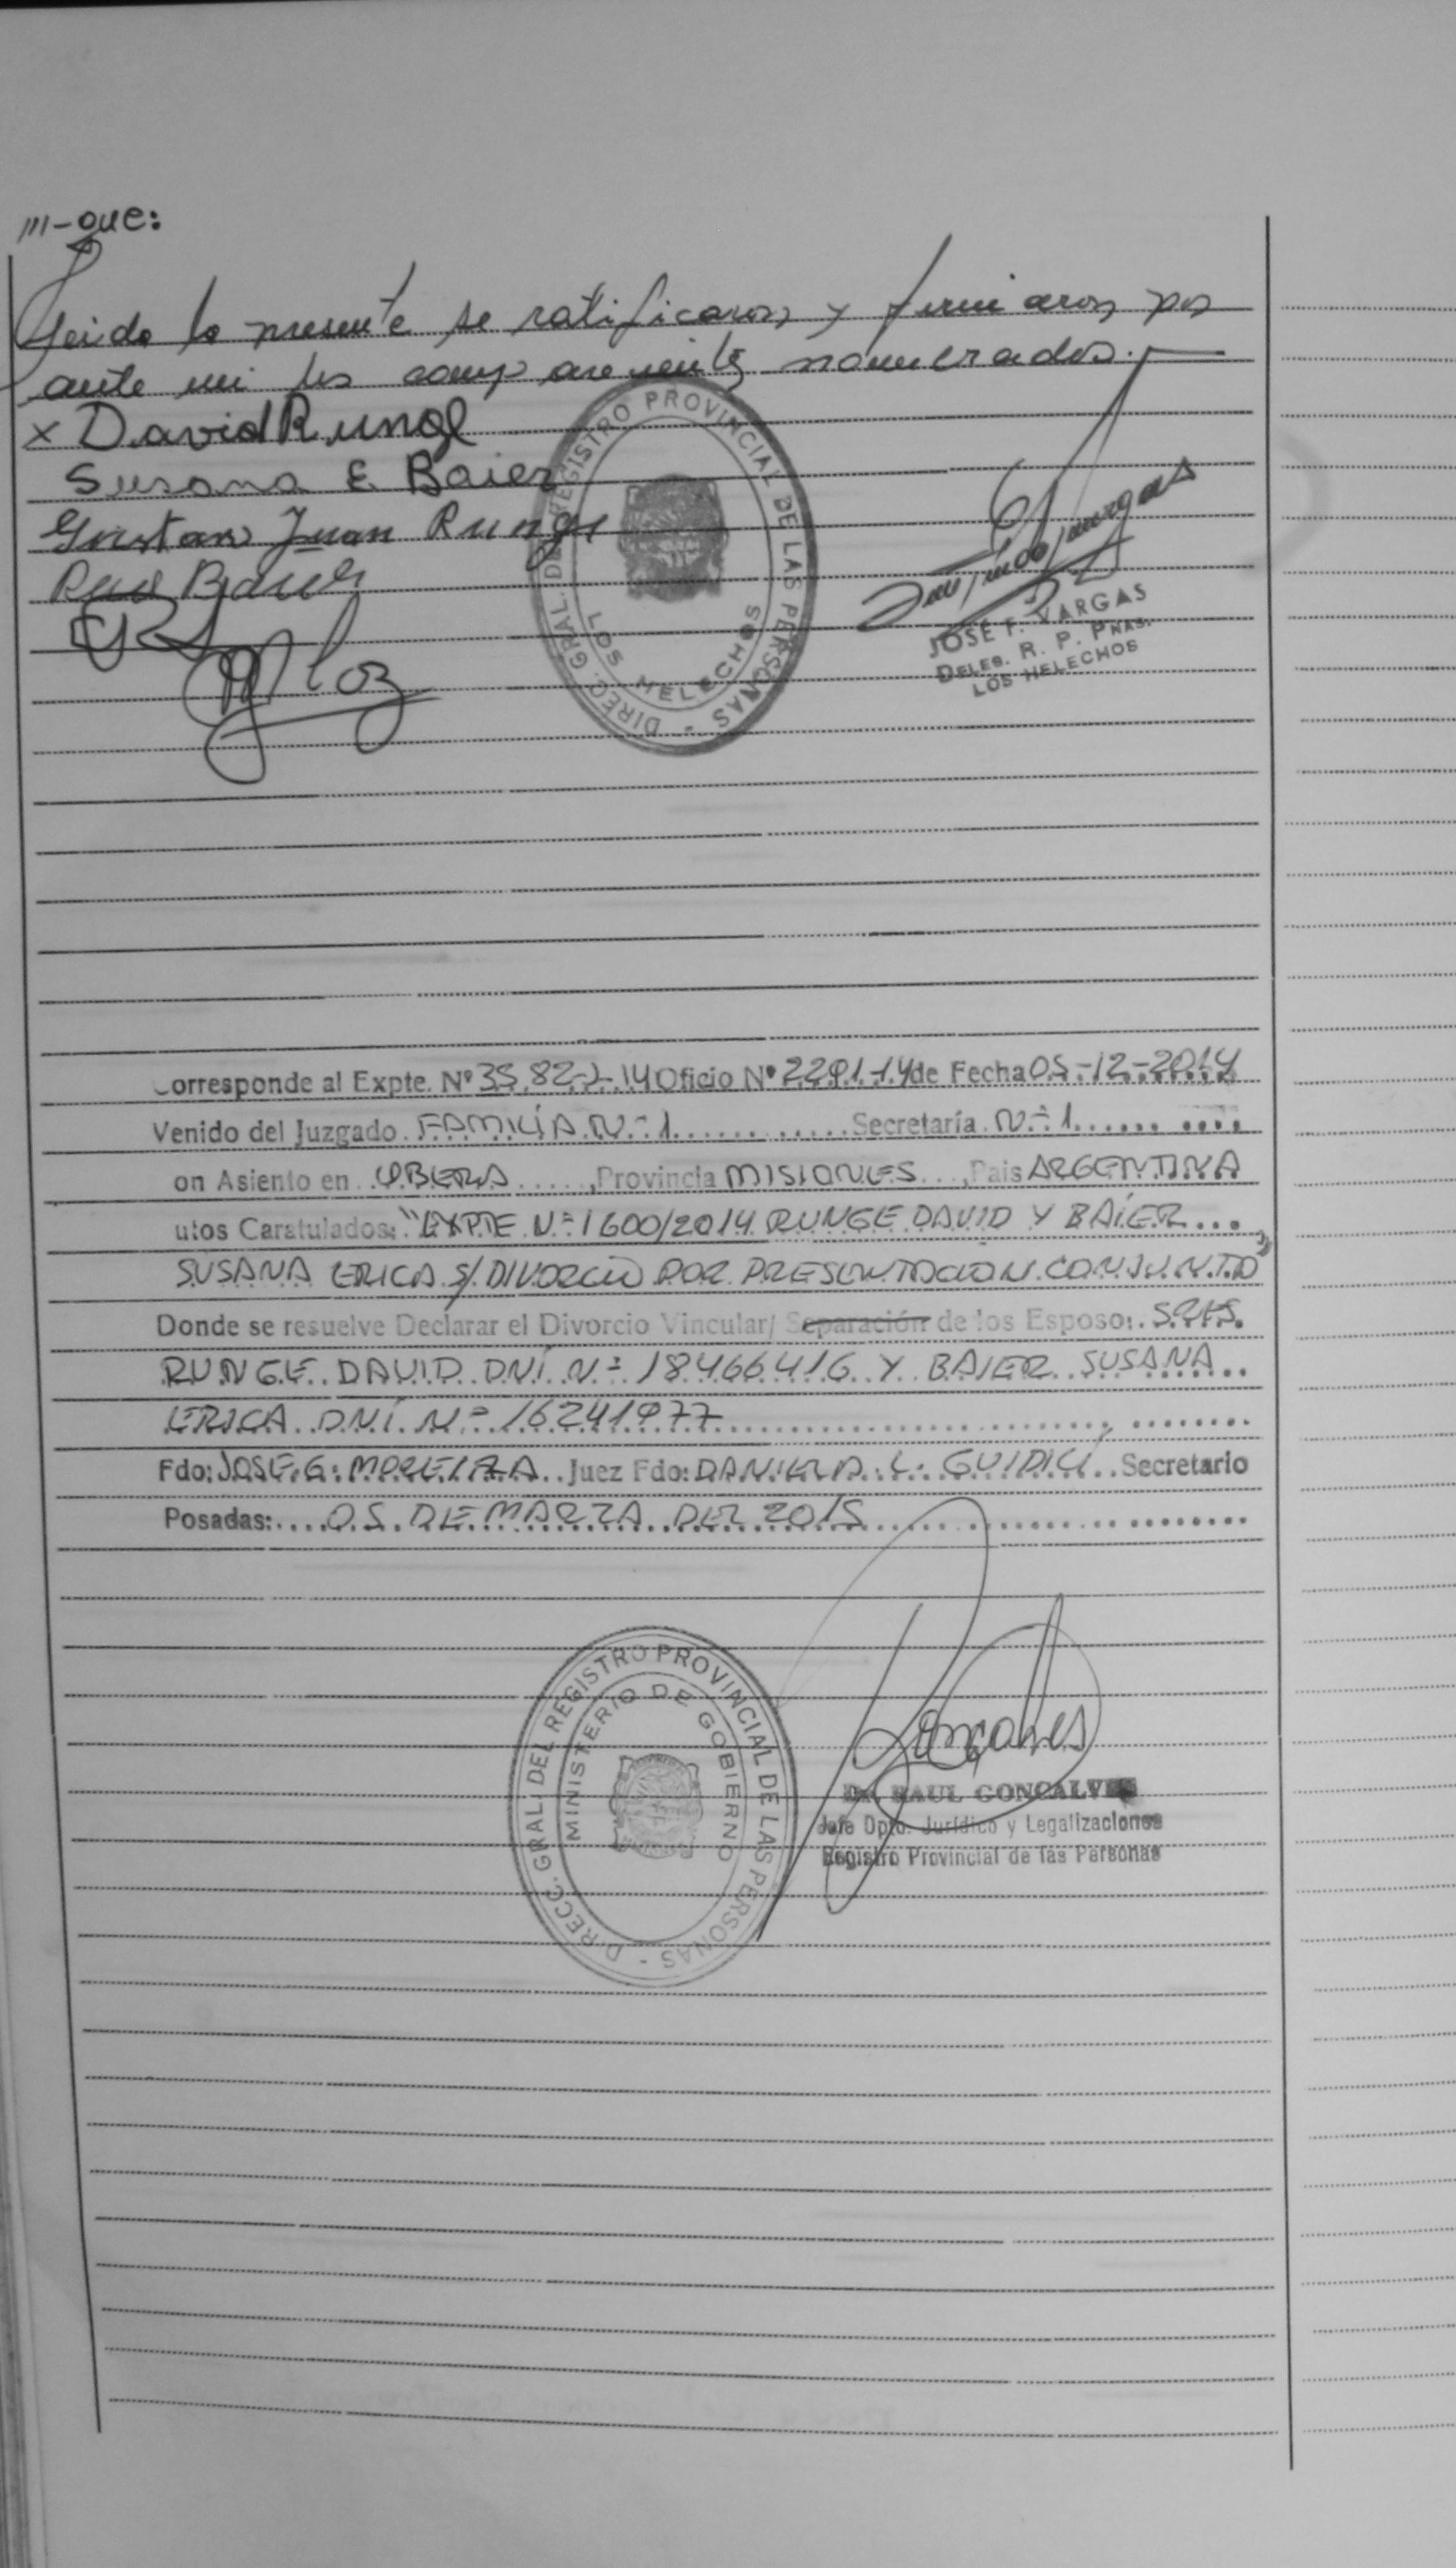 III-que:
Leida la presente se ratificaron y firmaron por
ante mi los comparecientes nombrados.
x David Runge
Susana E Baier
Gustavo Juan Runge
DIREC. GRAL. DEL REGISTRO PROVINCIAL DE LAS PERSONAS -
LOS HELECHOS
JOSE F. VARGAS
DELEG. R. P. PNAS.
LOS HELECHOS
orresponde al Expte. Nº 3582-J-14 Oficio Nº 2291-14 de Fecha 05-12-2014
Venido del Juzgado FAMILIA N-1 Secretaría N-1
on Asiento en OBERA, Provincia MISIONES, Pais ARGENTINA
utos Caratulados: "EXPTE N-1600/2014 RUNGE DAVID Y BAIER
SUSANA ERICA S/ DIVORCIO POR PRESENTACION CONJUNTA"
Donde se resuelve Declarar el Divorcio Vincular/ Separación de los Esposo: SRES.
RUNGE DAVID DNI N- 18466416 Y BAIER SUSANA
ERICA DNI N- 16241977
Fdo: JOSE G. MOREIRA Juez Fdo: DANIELA L. GUIDICI Secretario
Posadas: 05 DE MARZA DEL 2015
DIRECC. GRAL. DEL REGISTRO PROVINCIAL DE LAS PERSONAS -
MINISTERIO DE GOBIERNO
Goncalves
Dr. RAUL GONCALVES
Jefe Dpto. Jurídico y Legalizaciones
Registro Provincial de las Personas